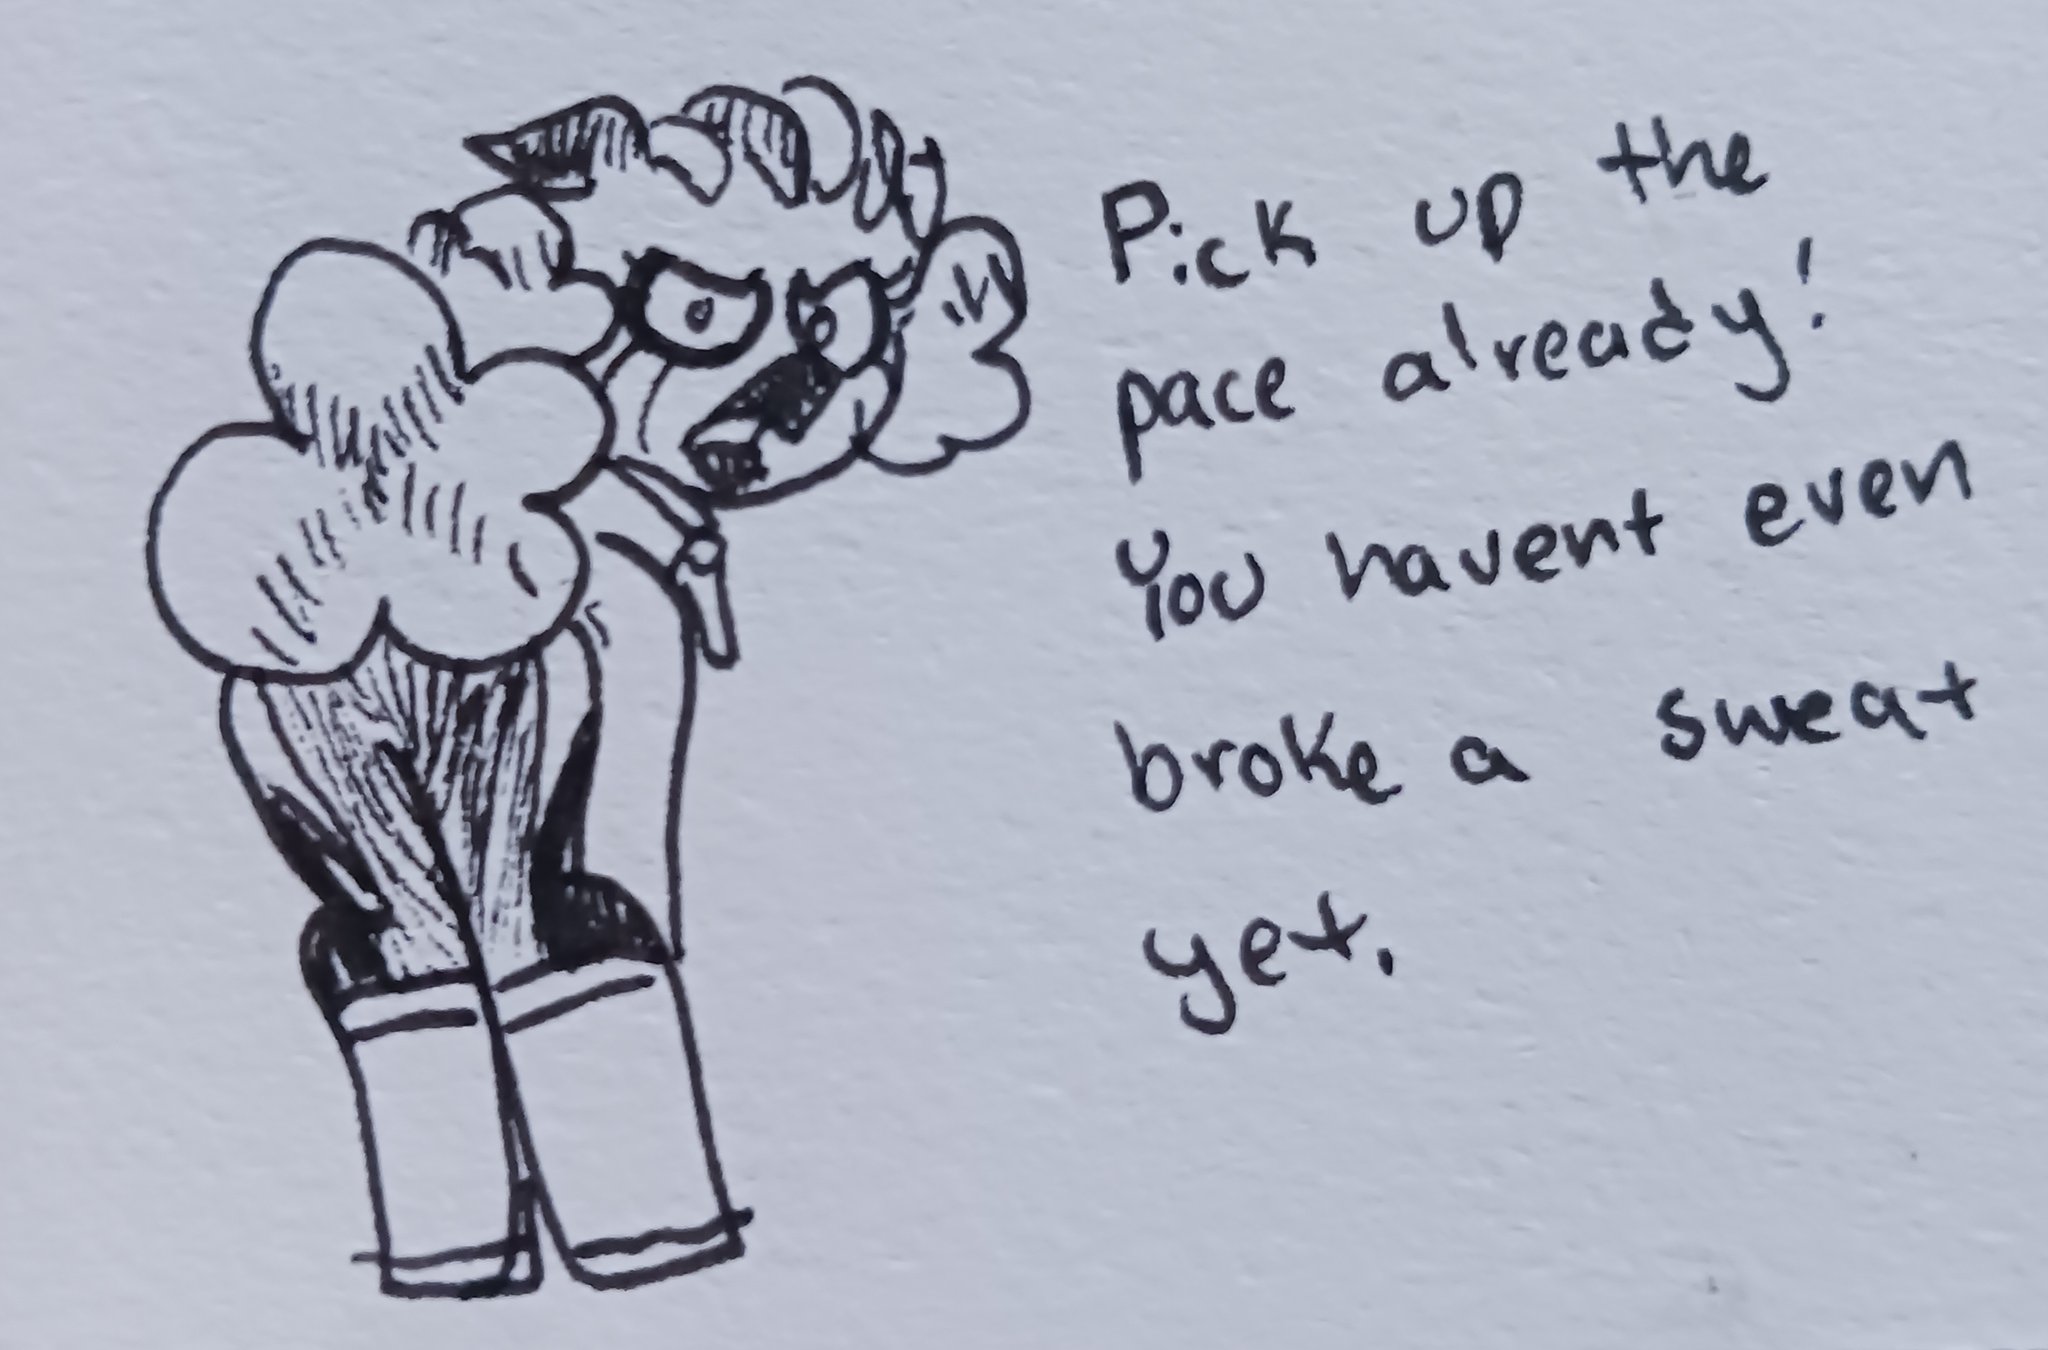 Pick up the
pace already!
You havent even
broke a sweat
yet.